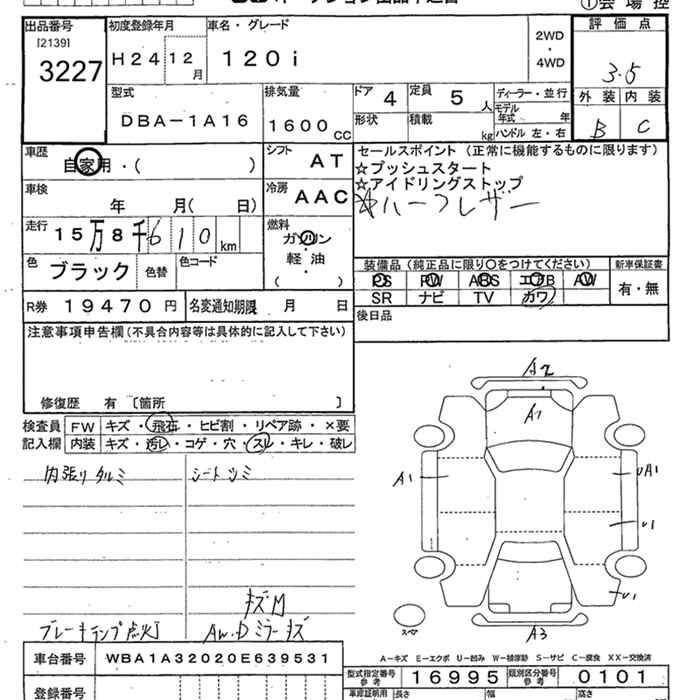 ①会場控
出品番号 [2139] 3227
初度登録年月 H24 12月
車名・グレード 120i
2WD・4WD
評価点 3.5
外装 B 内装 C
型式 DBA-1A16
排気量 1600cc
ドア 4 定員 5人
形状 積載 kg
ディーラー・並行
モデル年式 年
ハンドル 左・右
車歴 自家用・( )
シフト AT
車検 年 月( 日)
冷房 AAC
走行 15万8千610km
燃料 ガソリン・軽油( )
色 ブラック 色替 色コード
セールスポイント (正常に機能するものに限ります)
☆プッシュスタート
☆アイドリングストップ
☆ハーフレザー
装備品 (純正品に限り○をつけてください) 新車保証書
PS PW ABS エアB AW
SR ナビ TV カワ 有・無
R券 19470円 名変通知期限 月 日
後日品
注意事項申告欄(不具合内容等は具体的に記入して下さい)
修復歴 有〔箇所 〕
検査員記入欄
FW キズ・飛石・ヒビ割・リペア跡・×要
内装 キズ・汚レ・コゲ・穴・スレ・キレ・破レ
内張りタルミ シートシミ
ブレーキランプ点灯
AW.Dミラーキズ
A2
A1
A1
UA1
U1
U1
A3
スペア
A-キズ E-エクボ U-凹み W-補修跡 S-サビ C-腐食 XX-交換済
車台番号 WBA1A32020E639531
型式指定番号 参考 16995 類別区分番号 参考 0101
登録番号
車庫証明用 長さ 幅 高さ